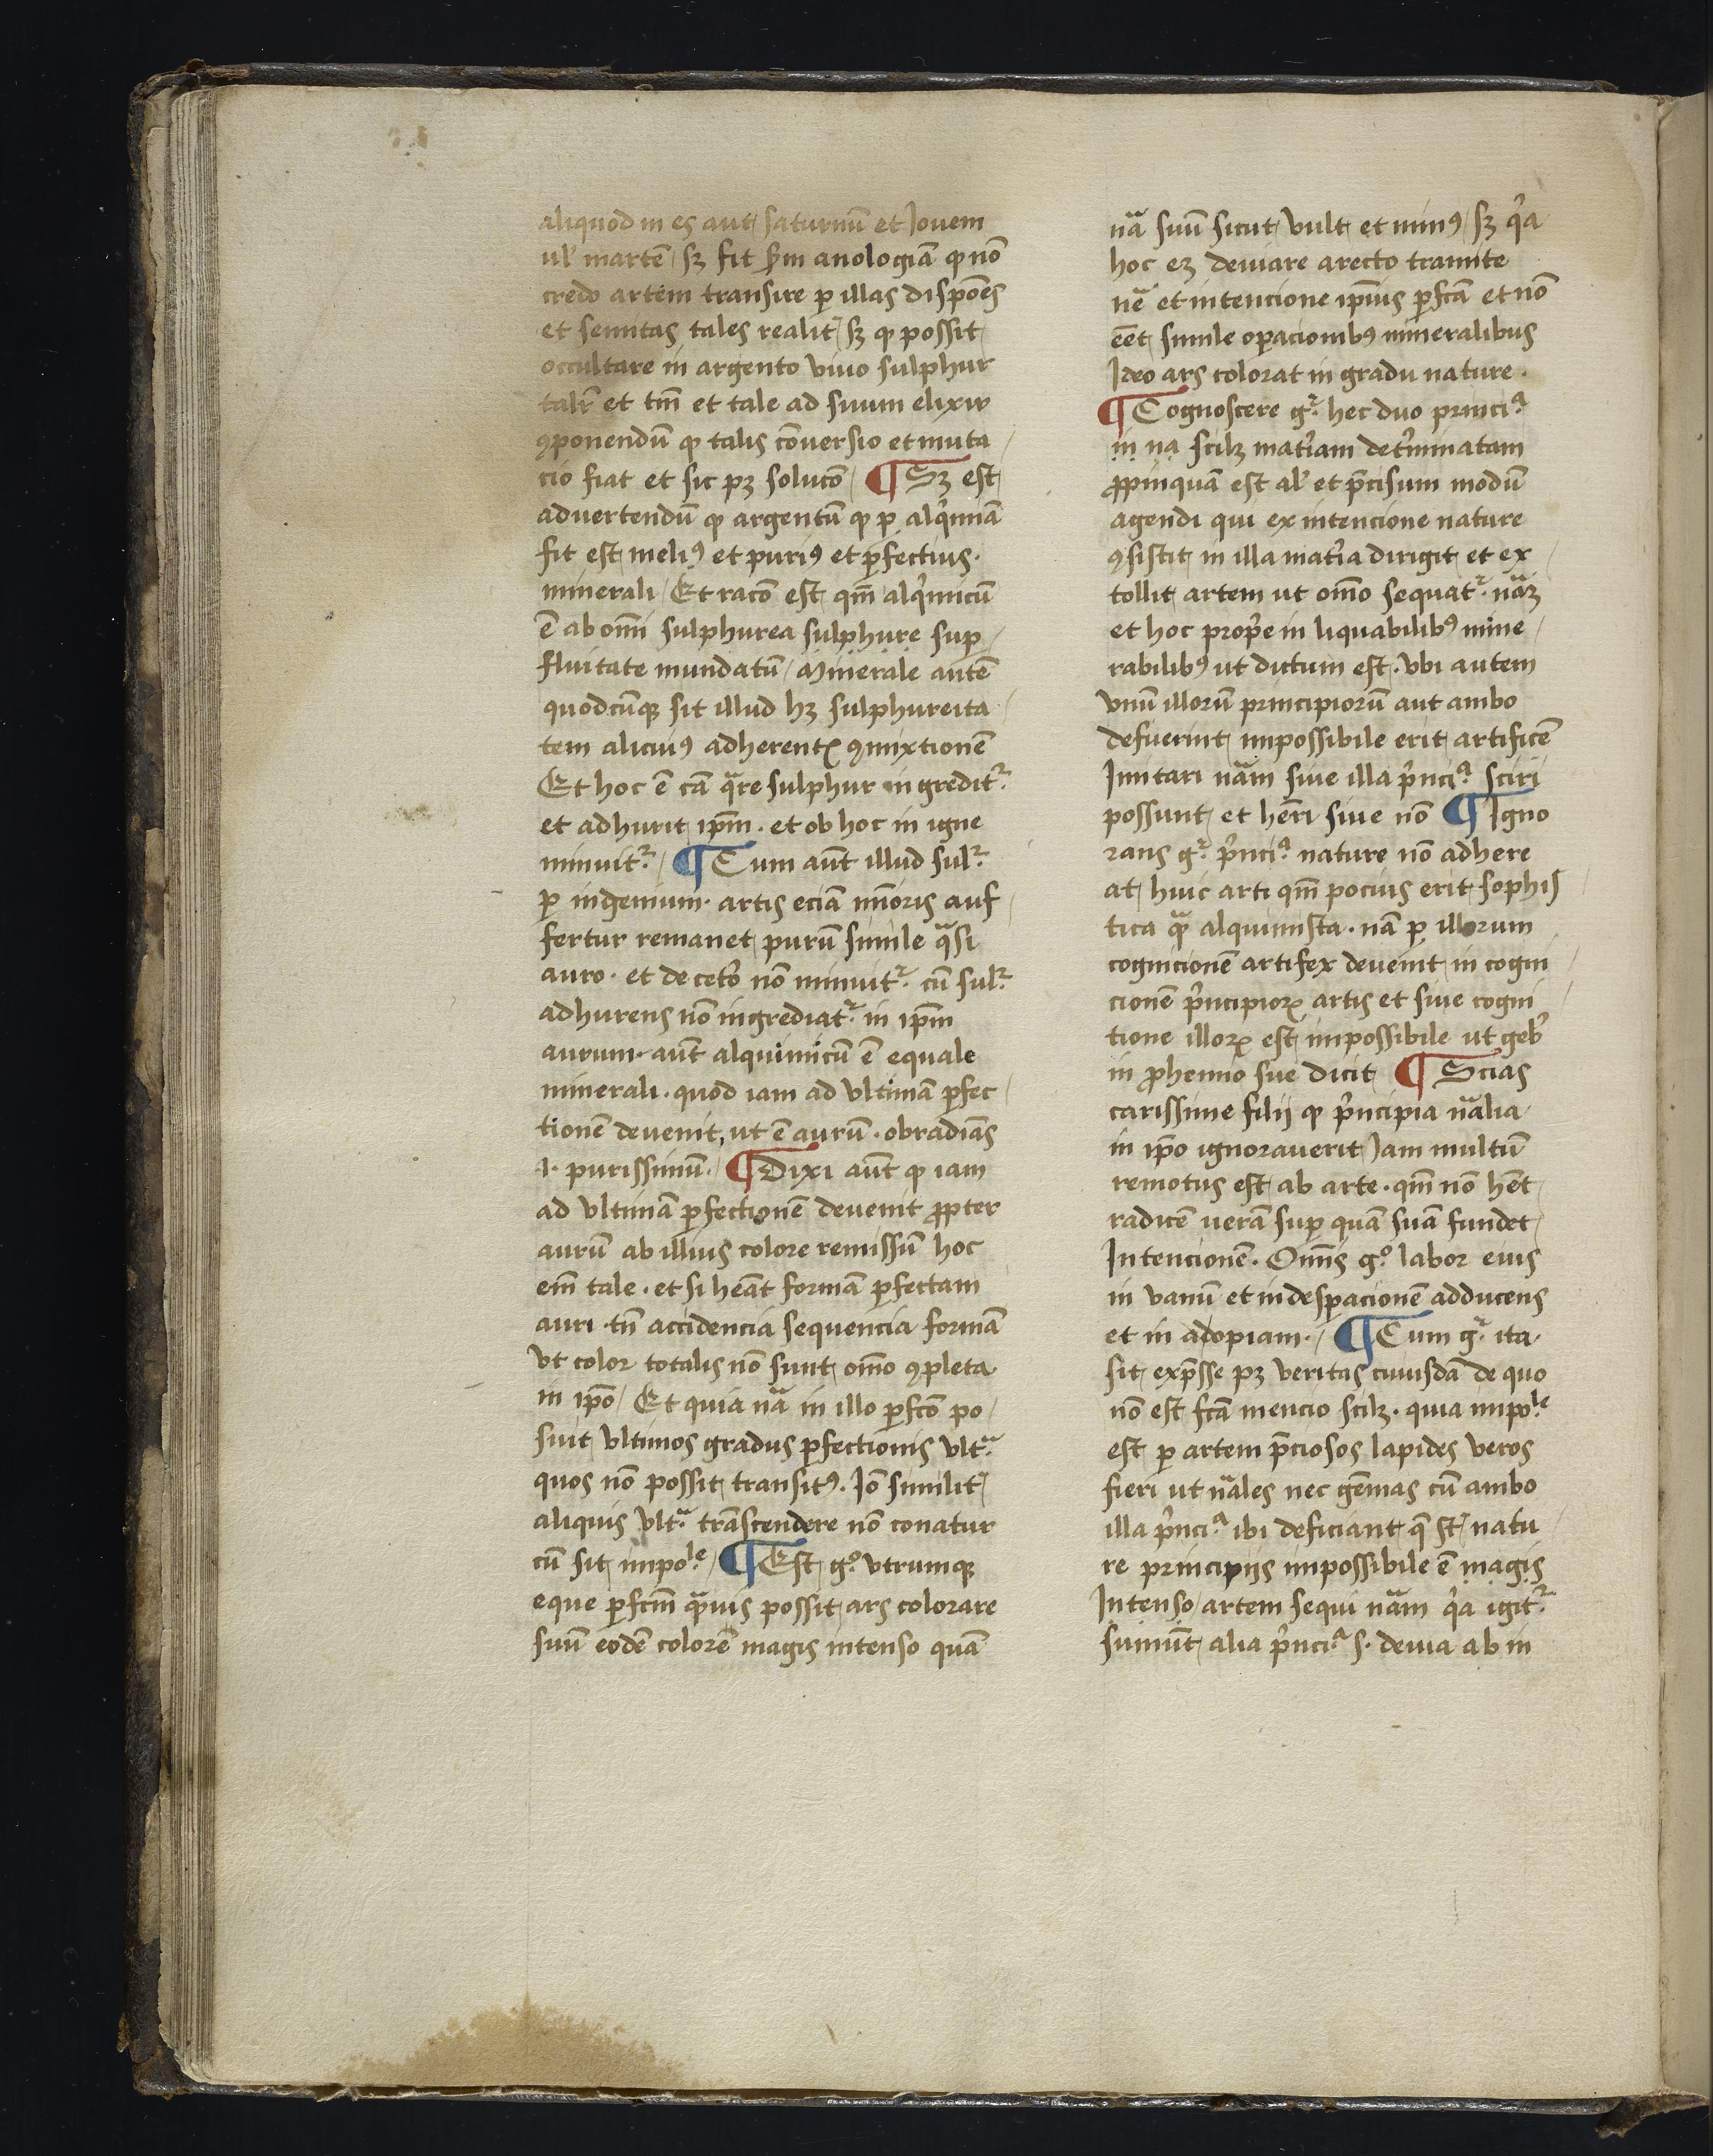 aliquod in es aut saturnū et Jouem
ul' martē sꝫ fit scd'm anologiā ꝙ nō
credo artem transire ꝑ illas dispōes
et semitas tales realit' sꝫ ꝙ possit
occultare in argento viuo sulphur
talr̄ et tm̄ et tale ad suum elixir
ꝯponendū ꝙ talis cōversio et muta
cio fiat et sic pꝫ solucō ¶ Sꝫ est
advertendū ꝙ argentū ꝙ ꝑ alq̓miā
fit est meliꝰ et puriꝰ et ꝑfectius.
minerali Et racō est qm̄ alq̓micū
ē ab om̄i sulphurea sulphure suꝑ
fluitate mundatū Minerale autē
quodcūqꝫ sit illud hꝫ sulphureita
tem aliciuꝰ adherentꝭ ꝯmixtionē
Et hoc ē cā qͣre sulphur ingredit᷑
et adhurit ip̄m . et ob hoc in igne
minuit᷑ ¶ Cum aūt illud sul᷑
ꝑ ingenium . artis eciā mīoris auf
fertur remanet purū simile qͣsi
auro . et de cet'o nō minuit᷑ cū sul᷑
adhurens nō ingrediat᷑ in ip̄m
aurum . aūt alquimicū ē equale
minerali . quod iam ad vltimā ꝑfec
tionē devenit, ut ē aurū . obradiās
.i. purissimū. ¶ Dixi aūt ꝙ iam
ad vltimā ꝑfectionē devenit ꝓpter
aurū ab illius colore remissū hoc
em̄ tale . et si heāt formā ꝑfectam
auri . tn̄ accidencia sequencia formā
vt color totalis nō sunt om̄o ꝯpleta
in ip̄o Et quia nͣa in illo ꝑfcō po
suit vltimos gradus ꝑfectionis vltͣ
quos nō possit transitꝰ. Iō similit'
aliquis vltͣ trāscendere nō conatur
cū sit impole ¶ Est gͦ vtrumqꝫ
eque ꝑfcm̄ qͣmuis possit ars colorare
suū eodē colorē magis intenso quā
nͣa suū sicut vult et minꝰ sꝫ q̓a
hoc eꝫ deuiare a recto tramite
nͣe et intencione ip̄ius ꝑfcā et nō
eēt simile oꝑacionibꝰ mineralibus
Ideo ars colorat in gradu nature .
¶ Cognoscere g᷑ hec duo princiͣ
in nͣa scilꝫ mat'iam det'minatam
ꝓpinquā est al' et p̄cisum modū
agendi qui ex intencione nature
ꝯsistit in illa mat'ia dirigit et ex
tollit artem ut om̄o sequat᷑ . nͣaꝫ
et hoc prop̄e in liquabilibꝰ mine
rabilibꝰ ut dictum est . vbi autem
vnū illorū principiorū aut ambo
defuerint impossibile erit artificē
Imitari nͣam siue illa p̓nciͣ sciri
possunt et hēri siue nō ¶ Igno
rans g᷑ p̓nciͣ nature nō adhere
at huic arti qm̄ pocius erit sophis
tica qͣ alquimista . nā ꝑ illorum
cognicionē artifex devenit in cogni
cionē p̓ncipioꝝ artis et siue cogni
tione illoꝝ est impossibile ut geb'
in ꝓhemio sue dicit ¶ Scias
carissime filij ꝙ p̓ncipia nͣalia
in ip̄o ignoraverit Jam multū
remotus est ab arte . qm̄ nō hēt
radicē uerā suꝑ quā suā fundet
Intencionē . Om̄is gͦ labor eius
in vanū et in desꝑacionē adducens
et in adopiam . ¶ Cum g᷑ ita
sit exp̄sse pꝫ veritas cuiusdā de quo
nō est fcā mencio scilꝫ . quia impole
est ꝑ artem p̄ciosos lapides veros
fieri ut nͣales nec gēmas cū ambo
illa p̓nciͣ ibi deficiant q̄ st᷑ natu
re principijs impossibile ē magis
Intenso artem sequi nͣam q̓a igit᷑
sumūt alia p̓nciͣ s. deuia ab in